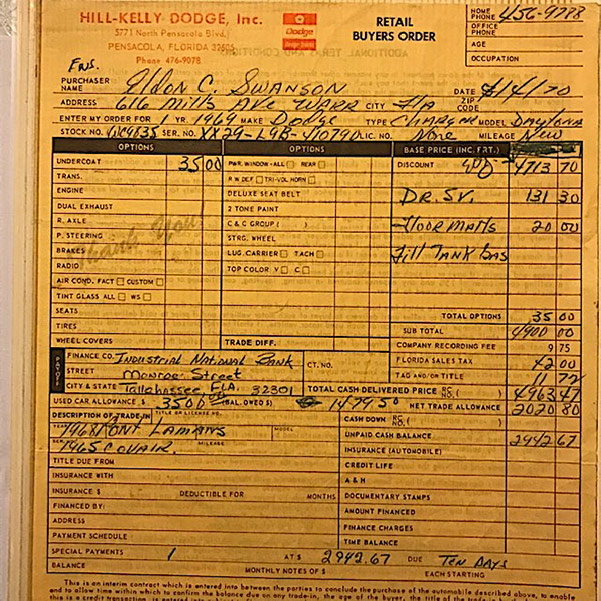 HILL-KELLY DODGE, Inc.
5771 North Pensacola Blvd.
PENSACOLA, FLORIDA 32505
Phone 476-9078
Dodge
RETAIL
BUYERS ORDER
HOME PHONE 456-9788
OFFICE PHONE
AGE
OCCUPATION
PURCHASER NAME Eldon C. Swanson DATE
ADDRESS 616 Mills Ave WARR CITY FLA ZIP CODE
ENTER MY ORDER FOR 1 YR. 1969 MAKE Dodge TYPE Charger MODEL Daytona
STOCK NO. SER. NO. XX29-L9B-410790 LIC. NO. None MILEAGE New
OPTIONS OPTIONS BASE PRICE (INC. FRT.)
UNDERCOAT 35 00 PWR. WINDOW-ALL REAR DISCOUNT 4713 70
TRANS. R W DEF TRI-VOL. HORN
ENGINE DELUXE SEAT BELT DR. SV. 131 30
DUAL EXHAUST 2 TONE PAINT
R. AXLE C & C GROUP ( ) Floor MATTs 20 00
P. STEERING STRG. WHEEL
Thank You
BRAKES LUG. CARRIER TACH Fill TANK GAS
RADIO TOP COLOR V C
AIR COND. FACT CUSTOM
TINT GLASS ALL WS
SEATS TOTAL OPTIONS 35 00
TIRES SUB TOTAL 4900 00
WHEEL COVERS TRADE DIFF. COMPANY RECORDING FEE 9 75
PAYOFF FINANCE CO. Industrial National Bank CT. NO. FLORIDA SALES TAX 42 00
STREET Monroe Street TAG AND/OR TITLE 11 72
CITY & STATE Tallahassee FLA. 32301 TOTAL CASH DELIVERED PRICE RC NO. ( ) 4963 47
USED CAR ALLOWANCE $ 3500 00 (BAL. OWED $) 1479 50 NET TRADE ALLOWANCE 2020 80
DESCRIPTION OF TRADE-IN TITLE OR LICENSE NO. CASH DOWN RC NO. ( )
YEAR 1968 PONT LAMANS MODEL UNPAID CASH BALANCE 2942.67
1965 COVAIR. MILEAGE INSURANCE (AUTOMOBILE)
TITLE DUE FROM CREDIT LIFE
INSURANCE WITH A & H
INSURANCE $ DEDUCTIBLE FOR MONTHS DOCUMENTARY STAMPS
FINANCED BY: AMOUNT FINANCED
ADDRESS FINANCE CHARGES
PAYMENT SCHEDULE TIME BALANCE
SPECIAL PAYMENTS 1 AT $ 2942.67 DUE TEN DAYS
BALANCE MONTHLY NOTES OF $ EACH STARTING
This is an interim contract which is entered into between the parties to conclude the purchase of the automobile described above, to enable
and to allow time within which to confirm the balance due on any trade-in, the age of the buyer, the title of the trade-in